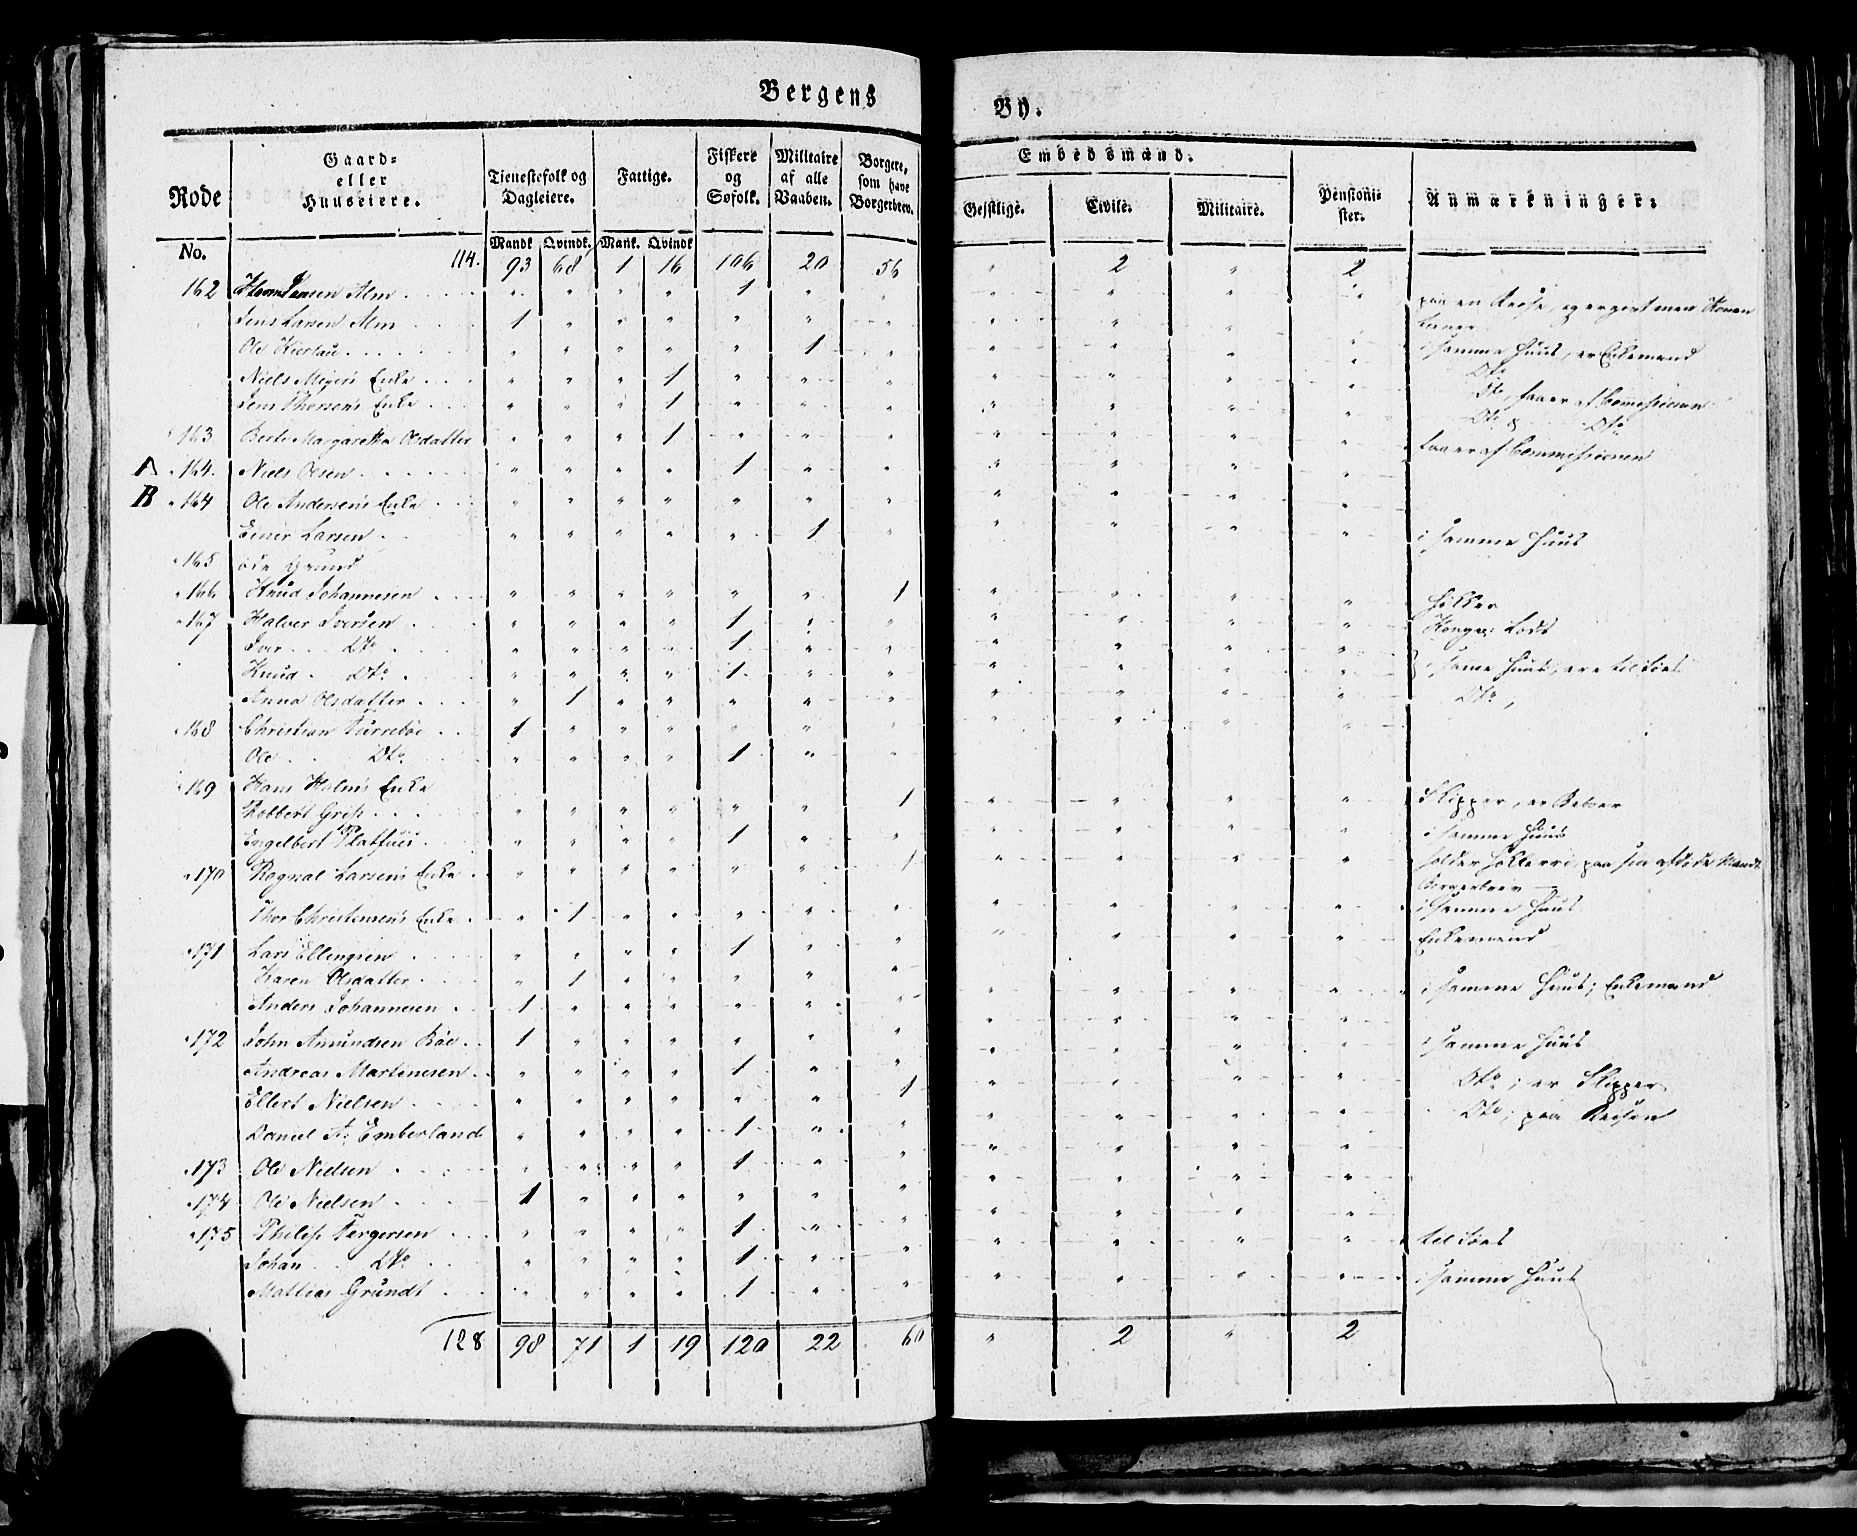 Bergens By.
Rode No. | Gaard- eller Huuseiere. | Tienestefolk og Dagleiere. | Fattige. | Fiskere og Søfolk. | Militaire af alle Vaaben. | Borgere, som have Borgerbrev. | Embedsmænd. | Pensioni- ster. | Anmærkninger.
Mandk. Qvindk. Mank. Qvindk. | Geistlige. Civile. Militaire.
114. 93 68 1 16 106 20 56 " 2 " 2
162 Jensen Alm 1 paa en Reise, Konen
Jens Larsen Alm 1
Ole 1 i samme Huus, er Enkemand
Niels Meyers Enke 1 Dto
Jens Thorsens Enke 1 Dto Dto
163 Berte Margaretha Olsdatter 1 af Commissionen
A 164. Niels Olsen 1
B 164 Ole Andersens Enke
Einer Larsen 1 i samme Huus
165 öde Grund
166 Knud Johannesen 1 Höker
167 Halver Iversen 1 Lods
Iver Dto 1
Knud Dto 1 i same Huus, ere til Söes
Anna Olsdatter 1 Dto,
168 Christian 1
Ole Dto 1
169 Hans Holms Enke
Robbert Grip 1 Skipper, er
Engelbert Platfues 1 i samme Huus
170 Rognal Larsens Enke 1 holder Hökkerri paa sin afdöde Mands Borgerbrev
Thor Christensens Enke 1 i samme Huus
171 Lars Ellingsen 1 Enkemand
Karen Olsdatter 1
Anders Johannesen 1 i samme Huus; Enkemand
172 John Amundsen Röe 1
Andreas Martinesen 1 i samme Huus
Ellert Nielsen 1 Dto; er Skipper
Daniel A: Emberland 1 Dto; paa Reisen
173 Ole Nielsen 1
174 Ole Nielsen 1
175 Philip Tergersen 1 til Söes
Johan Dto 1
Mathias Grundt 1 i samme Huus
128 98 71 1 19 120 22 60 " 2 " 2